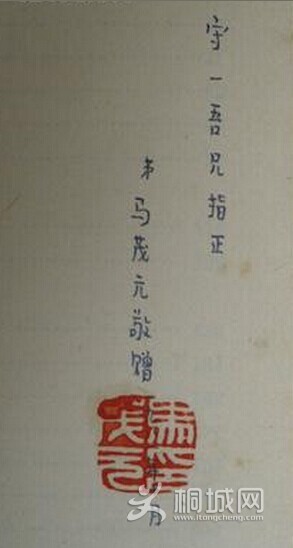 守一吾兄指正
弟马茂元敬赠
月
桐城网
www.itongcheng.com